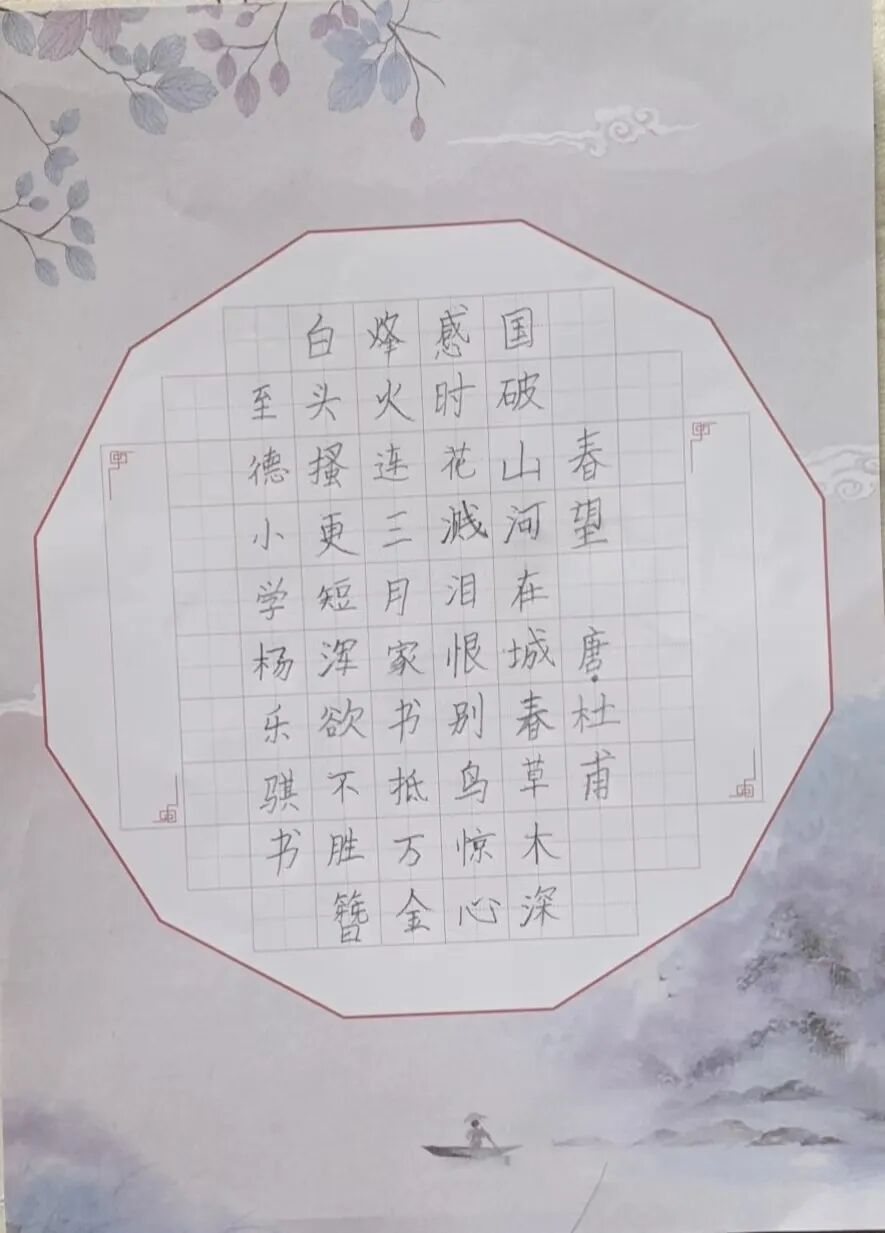 春望 唐·杜甫
国破山河在城春草木深
感时花溅泪恨别鸟惊心
烽火连三月家书抵万金
白头搔更短浑欲不胜簪
至德小学杨乐骐书